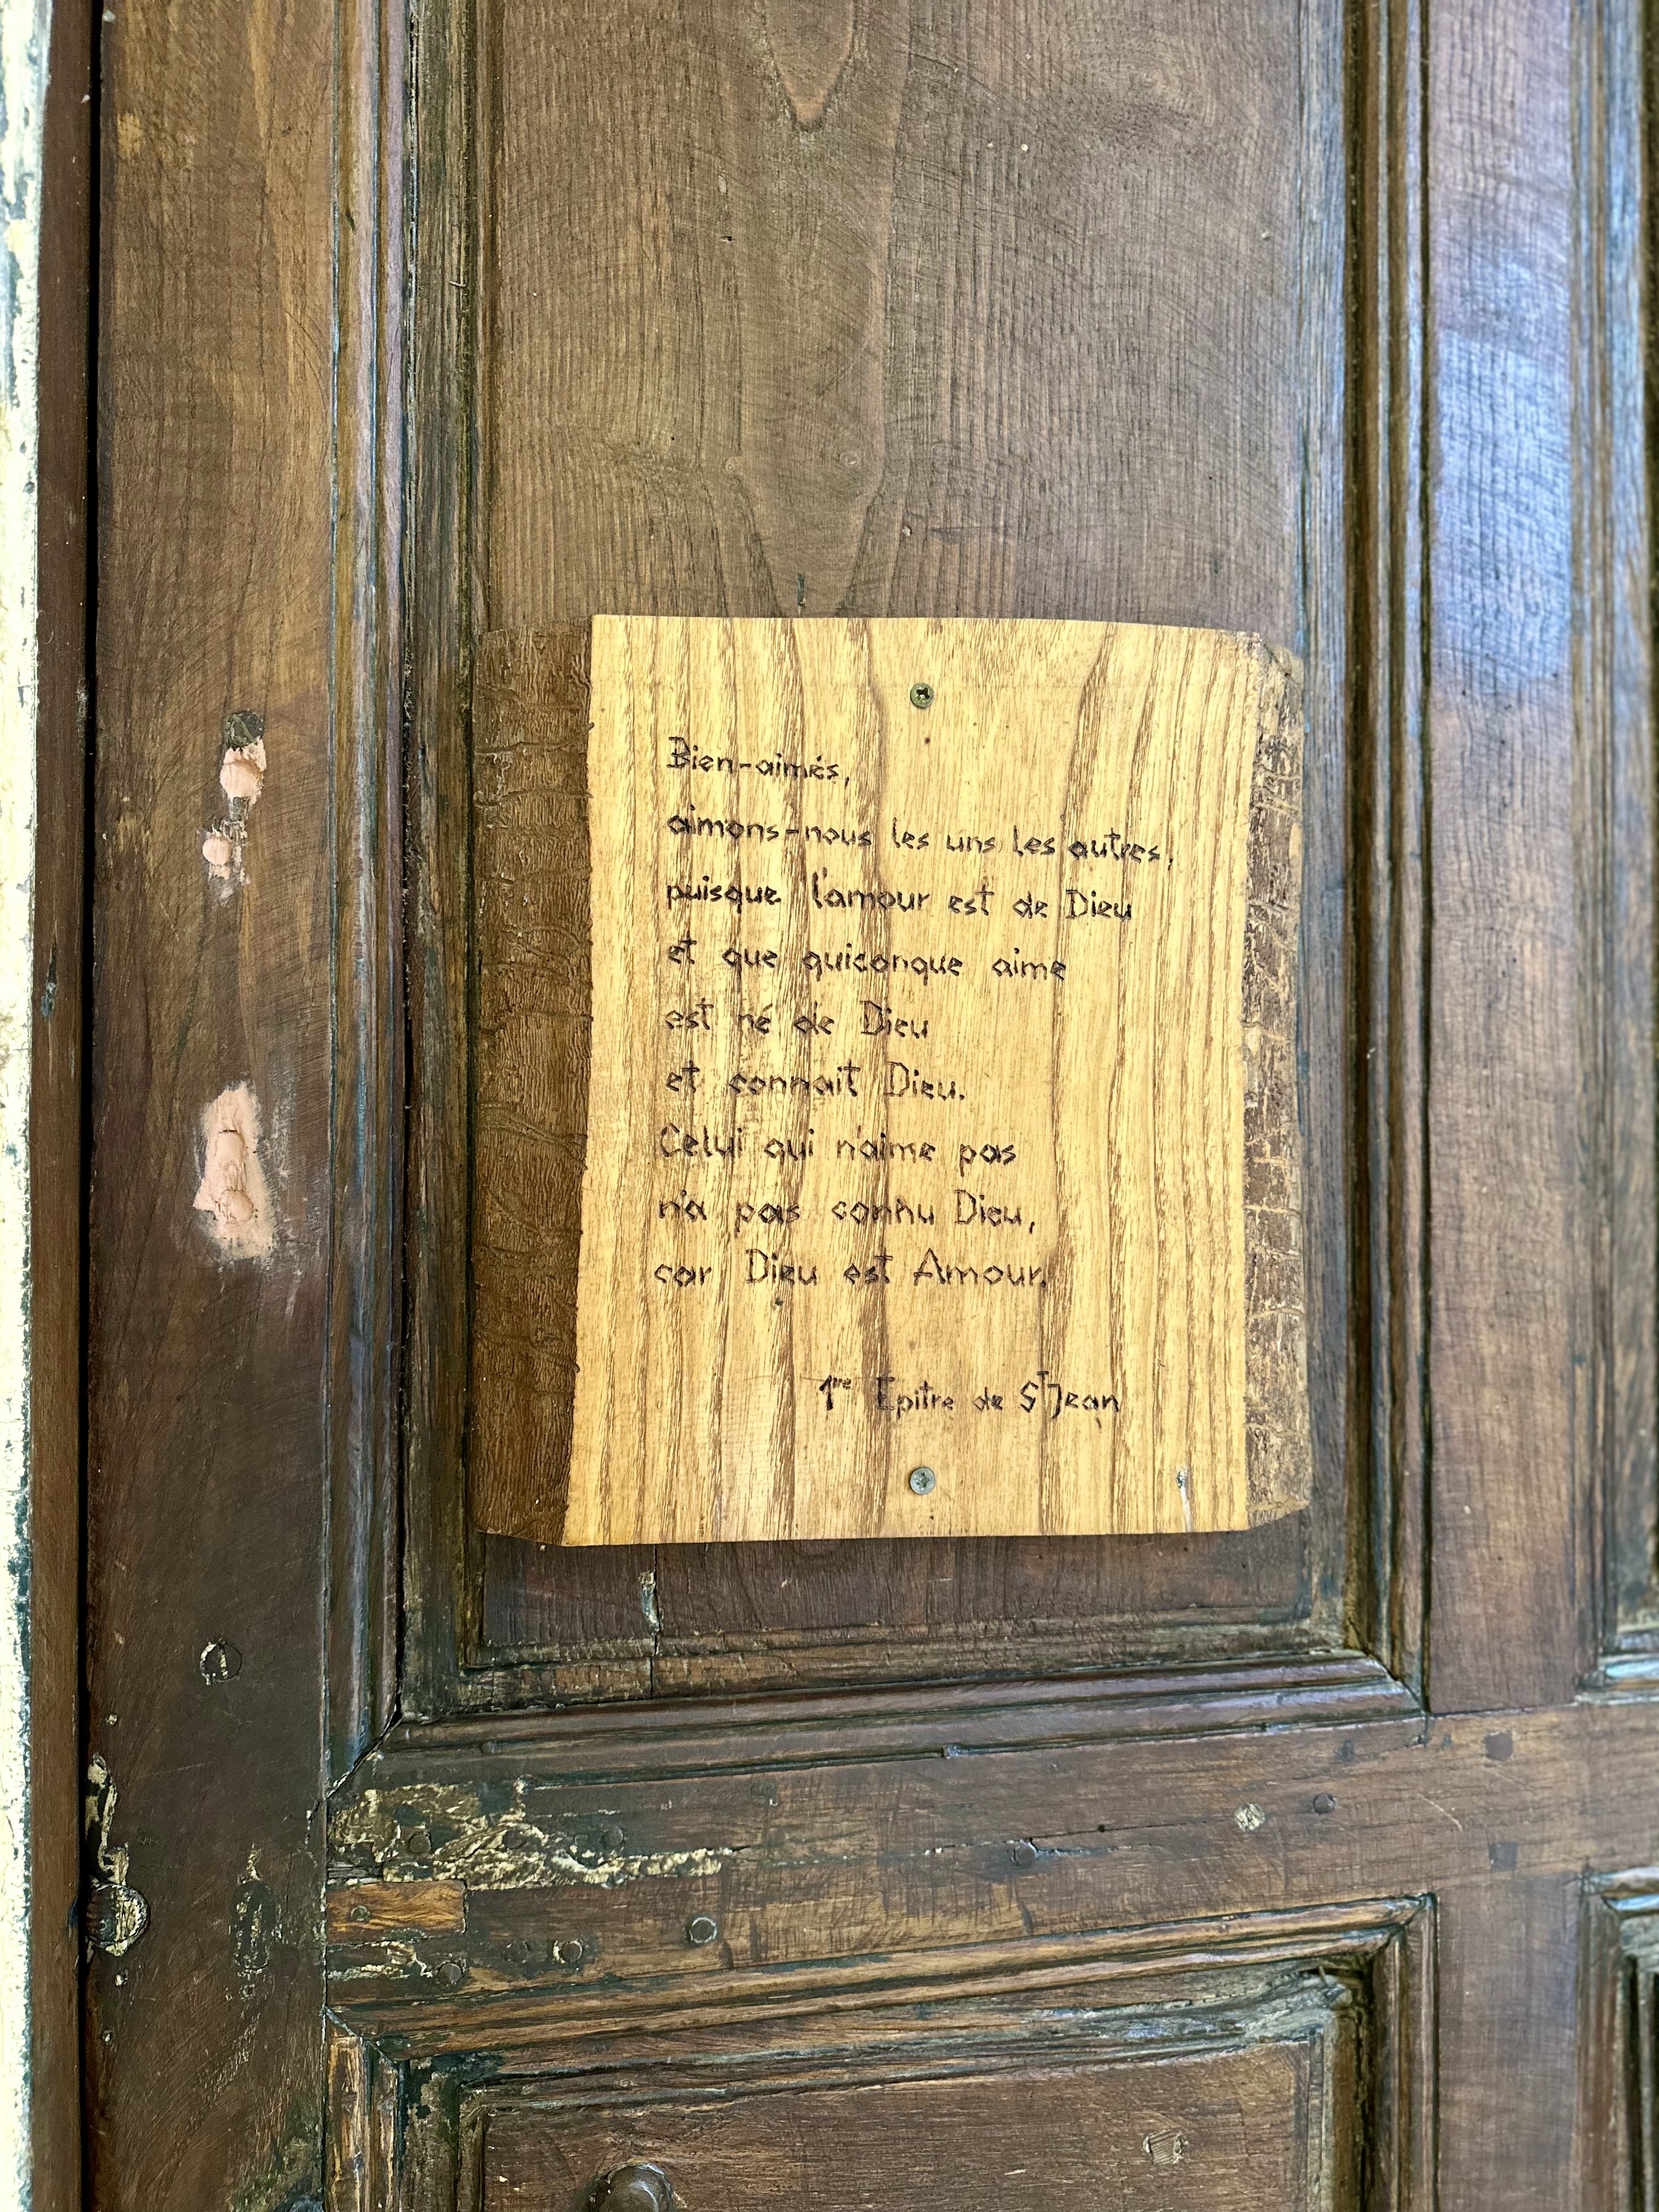 Bien-aimés,
aimons-nous les uns les autres,
puisque l'amour est de Dieu
et que quiconque aime
est né de Dieu
et connait Dieu.
Celui qui n'aime pas
n'a pas connu Dieu,
car Dieu est Amour.
1re Epitre de St Jean